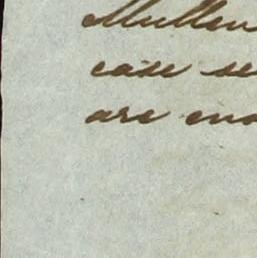 Mullen
case se
are enc